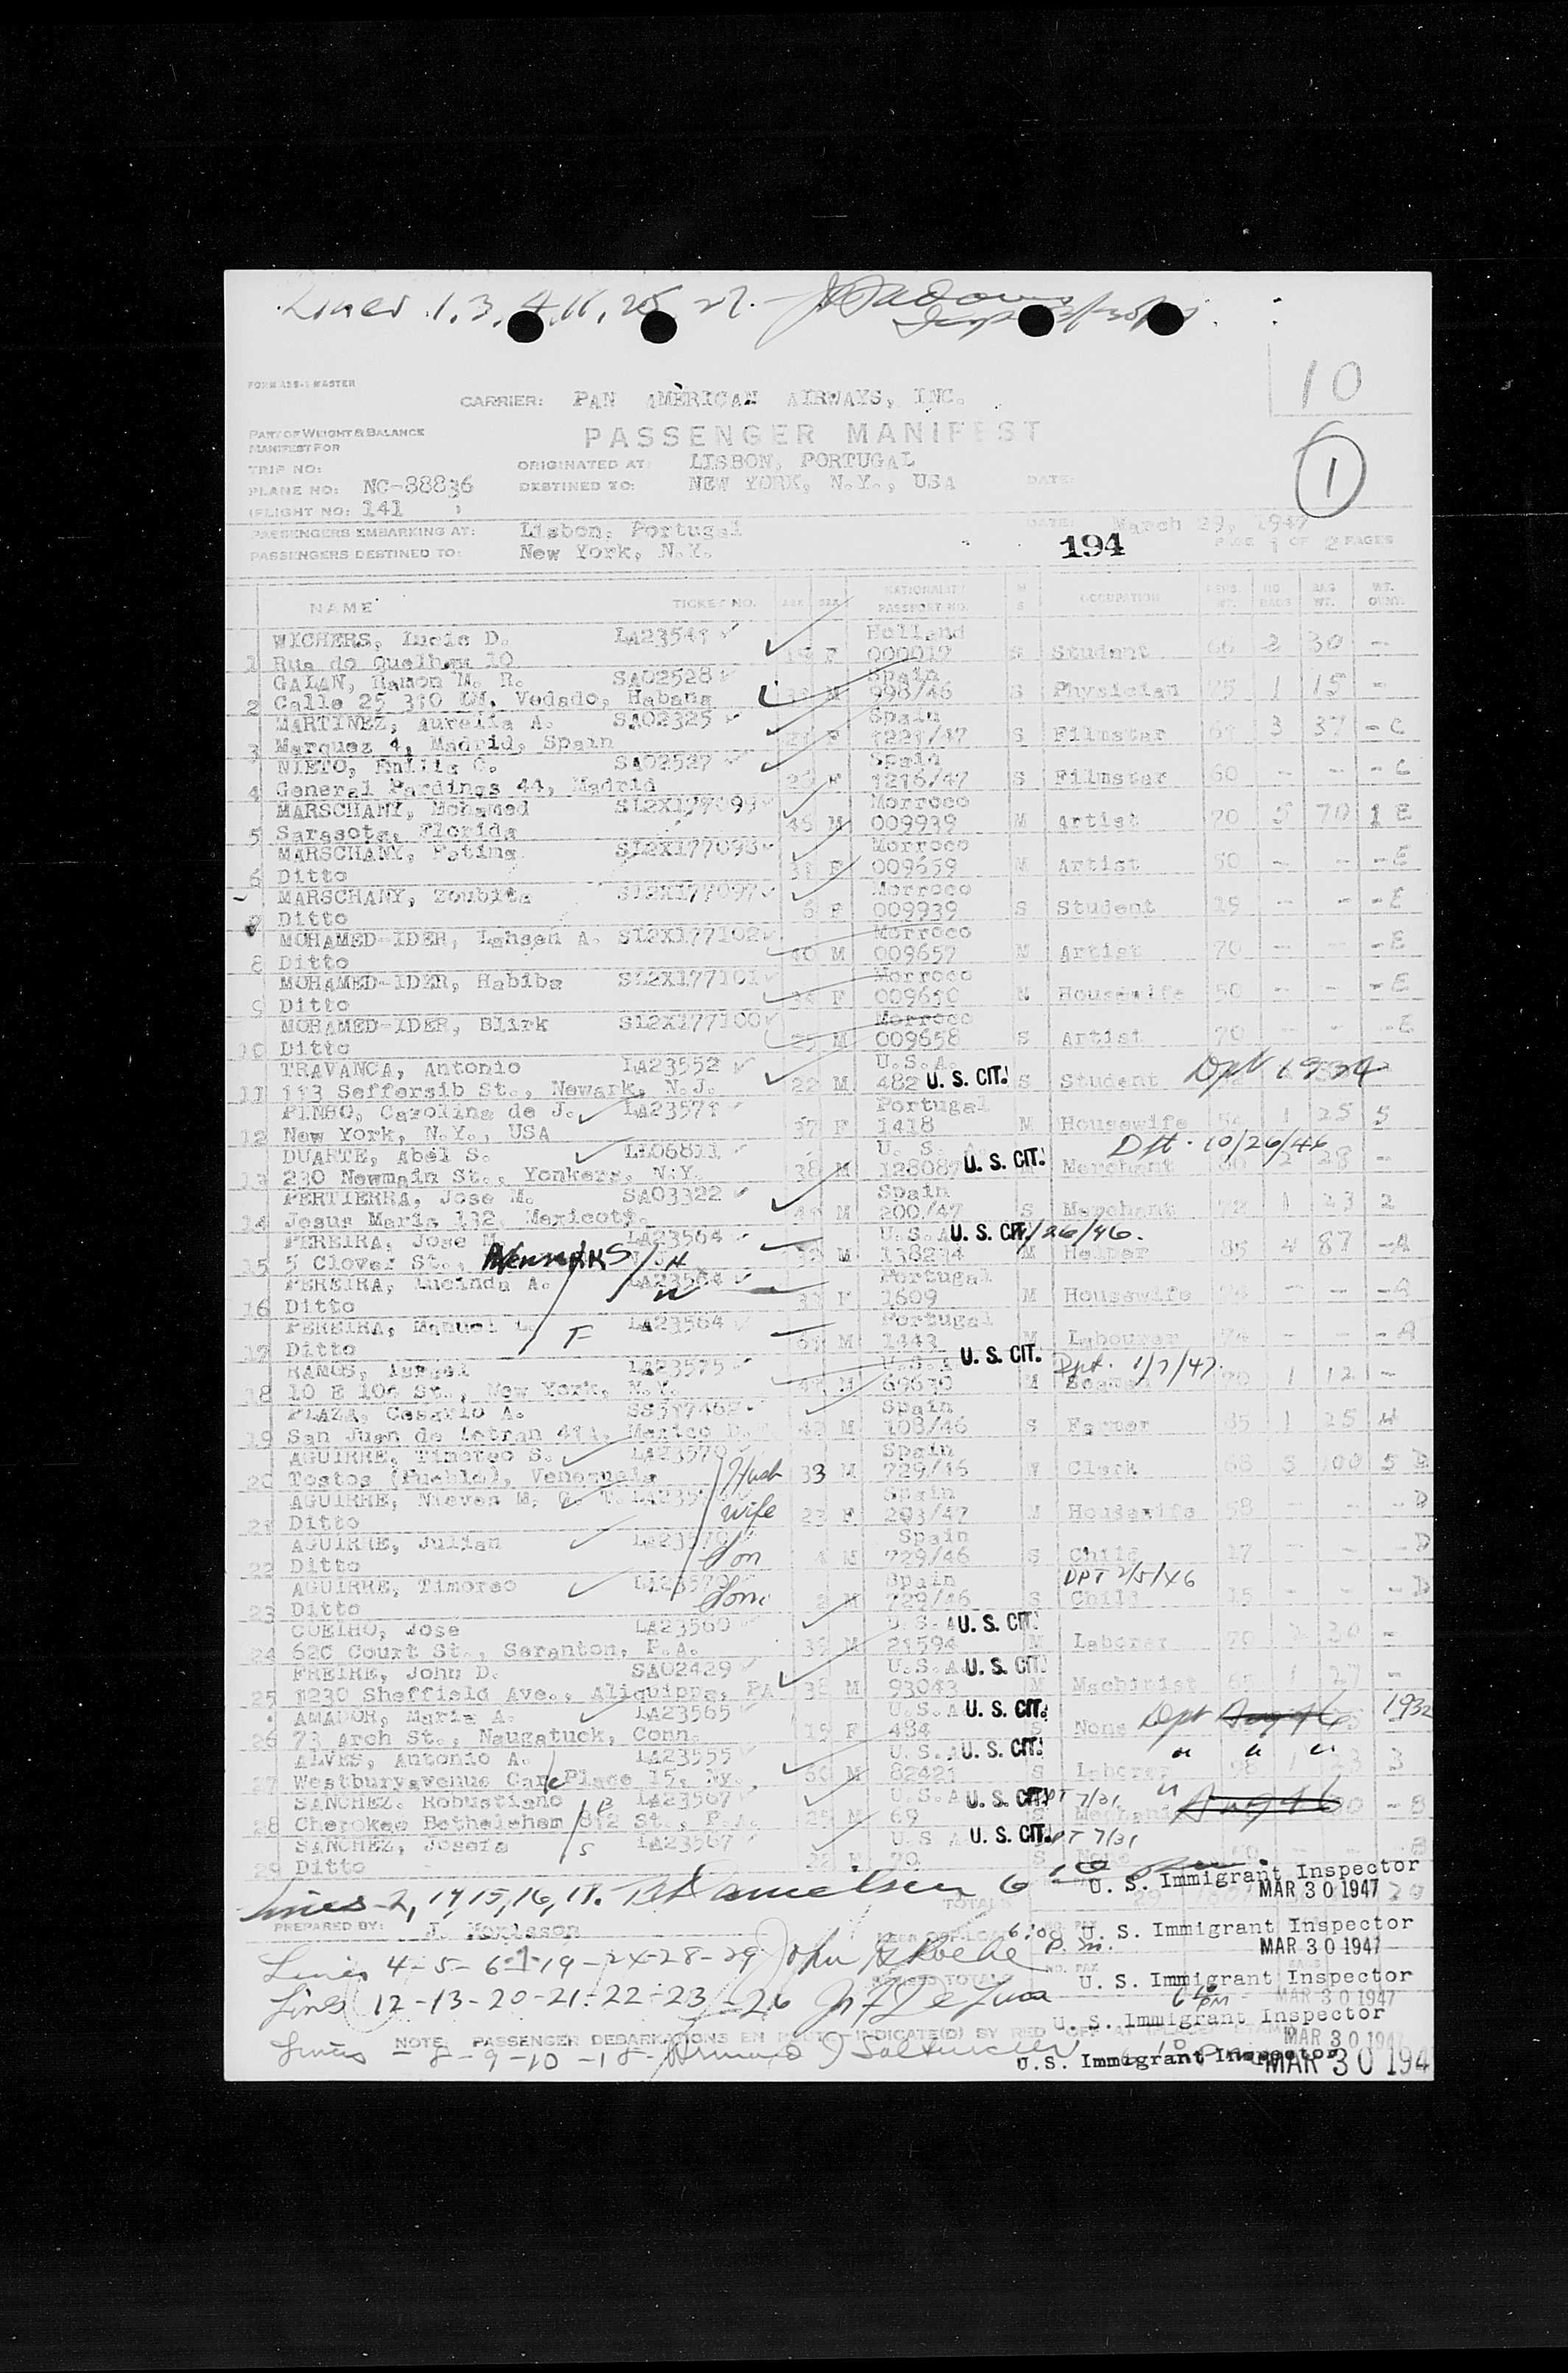 Lines 1, 3, 4, 11, 25, 27.
10
FORM ASS-1 MASTER
CARRIER: PAN AMERICAN AIRWAYS, INC.
PART OF WEIGHT & BALANCE
MANIFEST FOR
PASSENGER MANIFEST
1
TRIP NO:
ORIGINATED AT: LISBON, PORTUGAL
PLANE NO: NC-88836
DESTINED TO: NEW YORK, N.Y., USA
DATE:
FLIGHT NO: 141
PASSENGERS EMBARKING AT: Lisbon, Portugal
DATE: March 29, 1947
PASSENGERS DESTINED TO: New York, N.Y.
194
PAGE 1 OF 2 PAGES
NAME TICKET NO. AGE SEX NATIONALITY PASSPORT NO. M S OCCUPATION PERS. WT. NO. BAGS BAG WT. WT. OVWT.
WICHERS, Lucie D. LA23541 Holland
1 Rua do Quelhas 10 F 000017 S Student 66 2 30 -
GALAN, Ramon M. R. SA02528 Spain
2 Calle 25 370 LM, Vedado, Habana M 998/46 S Physician 75 1 15 -
MARTINEZ, Aurelia A. SA02325 Spain
3 Marquez 4, Madrid, Spain 21 F 1221/47 S Filmstar 61 3 37 - C
NIETO, Emilia C. SA02527 Spain
4 General Pardings 44, Madrid F 1216/47 S Filmstar 60 - - - C
MARSCHANY, Mohamed SL2X177099 Morroco
5 Sarasota, Florida 45 M 009939 M Artist 70 5 70 1 E
MARSCHANY, Fatima SL2X177098 Morroco
6 Ditto 31 F 009659 M Artist 50 - - - E
MARSCHANY, Zoubita SL2X177097 Morroco
7 Ditto 6 F 009939 S Student 19 - - - E
MOHAMED-IDER, Lahsen A. SL2X177102 Morroco
8 Ditto 40 M 009657 M Artist 70 - - - E
MOHAMED-IDER, Habiba SL2X177101 Morroco
9 Ditto F 009650 M Housewife 50 - - - E
MOHAMED-IDER, Blirk SL2X177100 Morroco
10 Ditto 25 M 009658 S Artist 70 - - - E
TRAVANCA, Antonio LA23552 U.S.A.
11 113 Seffersib St., Newark, N.J. 22 M 482 U. S. CIT. S Student Dpt 1934
PINHO, Carolina de J. LA23571 Portugal
12 New York, N.Y., USA 37 F 1418 M Housewife 54 1 25 5
DUARTE, Abel S. LH06811 U. S. A Dft. 10/26/46
13 230 Newmain St., Yonkers, N.Y. 38 M 128087 U. S. CIT. Merchant 80 2 28 -
PERTIERRA, Jose M. SA03322 Spain
14 Jesus Maria 132, Mexicoty. 44 M 200/47 S Merchant 72 1 23 2
PEREIRA, Jose M. LA23564 U.S.A U. S. CIT. /26/46.
15 5 Clover St., Newark N.J. H M 138274 M Helper 85 4 87 - A
PEREIRA, Lucinda A. LA23564 W Portugal
16 Ditto 31 F 1609 M Housewife - - - A
PEREIRA, Manuel LA23564 Portugal
17 Ditto F 61 M 1443 M Labourer 74 - - - A
RAMOS, Ismael LA23575 U.S.A U. S. CIT. Dpt. 1/7/47.
18 10 E 106 St., New York, N.Y. M 69630 M Seaman 70 1 12 -
PLAZA, Cesario A. SS317462 Spain
19 San Juan de Letran 411, Mexico D. 42 M 108/46 S Farmer 85 1 25 4
AGUIRRE, Timoteo S. LA23570 Spain
20 Tostos (Pueblo), Venezuela Husb 33 M 729/46 M Clerk 68 5 100 5 D
AGUIRRE, Nieves M. G. T. LA23570 Spain
21 Ditto wife 23 F 293/47 M Housewife 58 - - - D
AGUIRRE, Julian LA23570 Spain
22 Ditto Son 4 M 729/46 S Child 17 - - - D
AGUIRRE, Timoreo LA23570 Spain DPT 2/5/46
23 Ditto Son 2 M 729/46 S Child 15 - - - D
COELHO, Jose LA23560 U.S.A U. S. CIT.
24 620 Court St., Saranton, P.A. 39 M 21594 M Laborer 70 2 30 -
FREIRE, John D. SA02429 U.S.A U. S. CIT.
25 1230 Sheffield Ave., Aliquippa, PA 38 M 93043 M Machinist 65 1 27 -
AMADOR, Maria A. LA23565 U.S.A U. S. CIT.
26 73 Arch St., Naugatuck, Conn. 19 F 484 S None Dpt Aug 46 1932
ALVES, Antonio A. LA23555 U.S.A U. S. CIT. " " "
27 Westburyavenue Carle Place 15, Ny. 50 M 82421 S Laborer 98 1 23 3
SANCHEZ, Robustiano B LA23567 U.S.A U. S. CIT. DPT 7/31
28 Cherokee Bethelehem 812 St., P.A. 25 M 69 S Mechanic Aug 46 - B
SANCHEZ, Josefa S LA23567 U S A U. S. CIT. DPT 7/31
29 Ditto F 70 S None - B
Lines 2, 14, 15, 16, 17. Danielsen 6 10 p.m.
U. S. Immigrant Inspector
MAR 30 1947
TOTALS
PREPARED BY: J.
6:00 P.M.
U. S. Immigrant Inspector
MAR 30 1947
Lines 4-5-6-7-19-24-28-29 John
U. S. Immigrant Inspector
MAR 30 1947
Lines 12-13-20-21-22-23-26
6 10 PM
U. S. Immigrant Inspector
MAR 30 194
NOTE: PASSENGER DEBARKATIONS EN ROUTE INDICATE(D) BY RED
Lines - 8-9-10-18-
U.S. Immigrant Inspector MAR 30 194